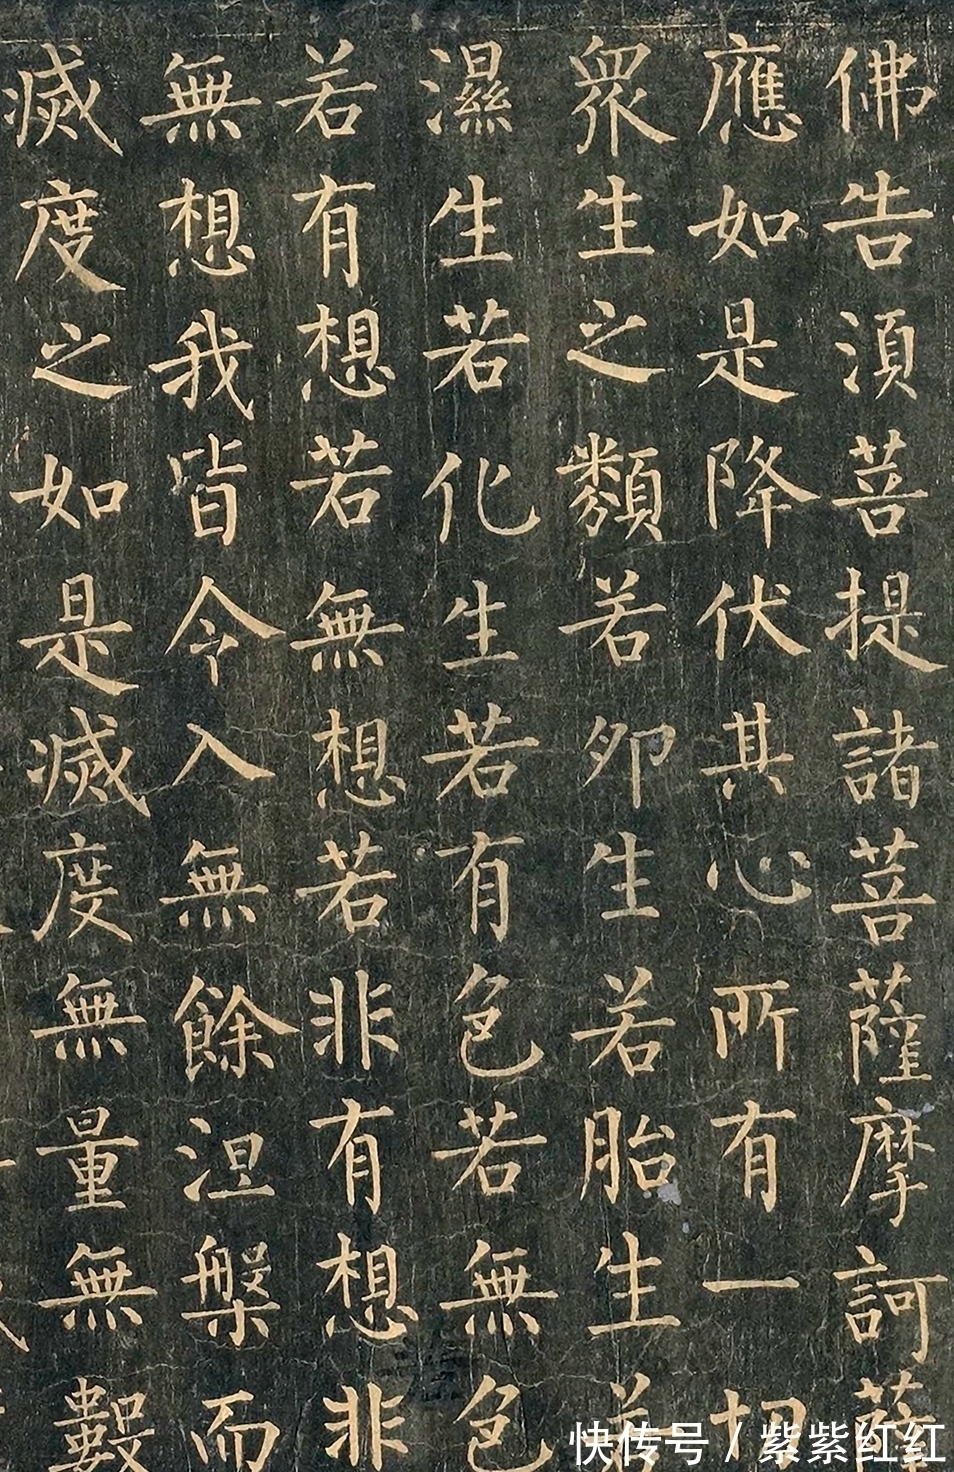 佛告須菩提諸菩薩摩訶薩
應如是降伏其心所有一切
衆生之類若卵生若胎生若
濕生若化生若有色若無色
若有想若無想若非有想非
無想我皆令入無餘涅槃而
滅度之如是滅度無量無數
快传号 / 紫紫红红